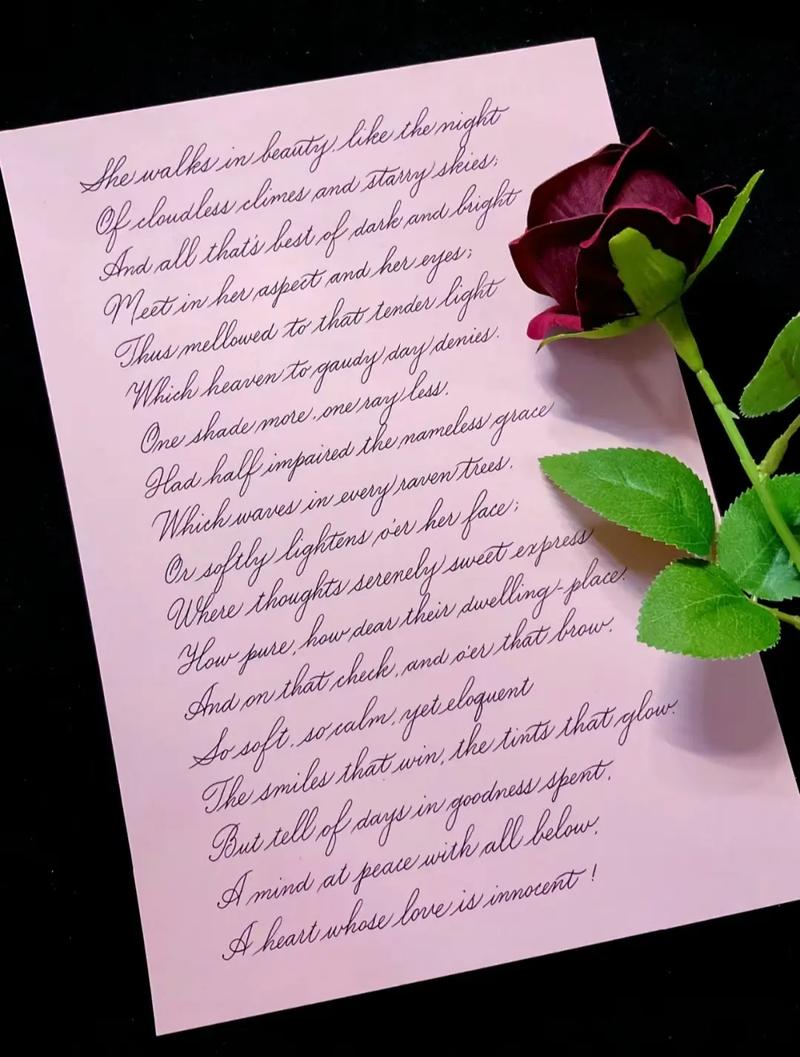 She walks in beauty, like the night
Of cloudless climes and starry skies;
And all that's best of dark and bright
Meet in her aspect and her eyes;
Thus mellowed to that tender light
Which heaven to gaudy day denies.
One shade more, one ray less,
Had half impaired the nameless grace
Which waves in every raven trees,
Or softly lightens o'er her face;
Where thoughts serenely sweet express
How pure, how dear their dwelling-place.
And on that check, and o'er that brow,
So soft, so calm, yet eloquent
The smiles that win, the tints that glow.
But tell of days in goodness spent,
A mind at peace with all below,
A heart whose love is innocent!